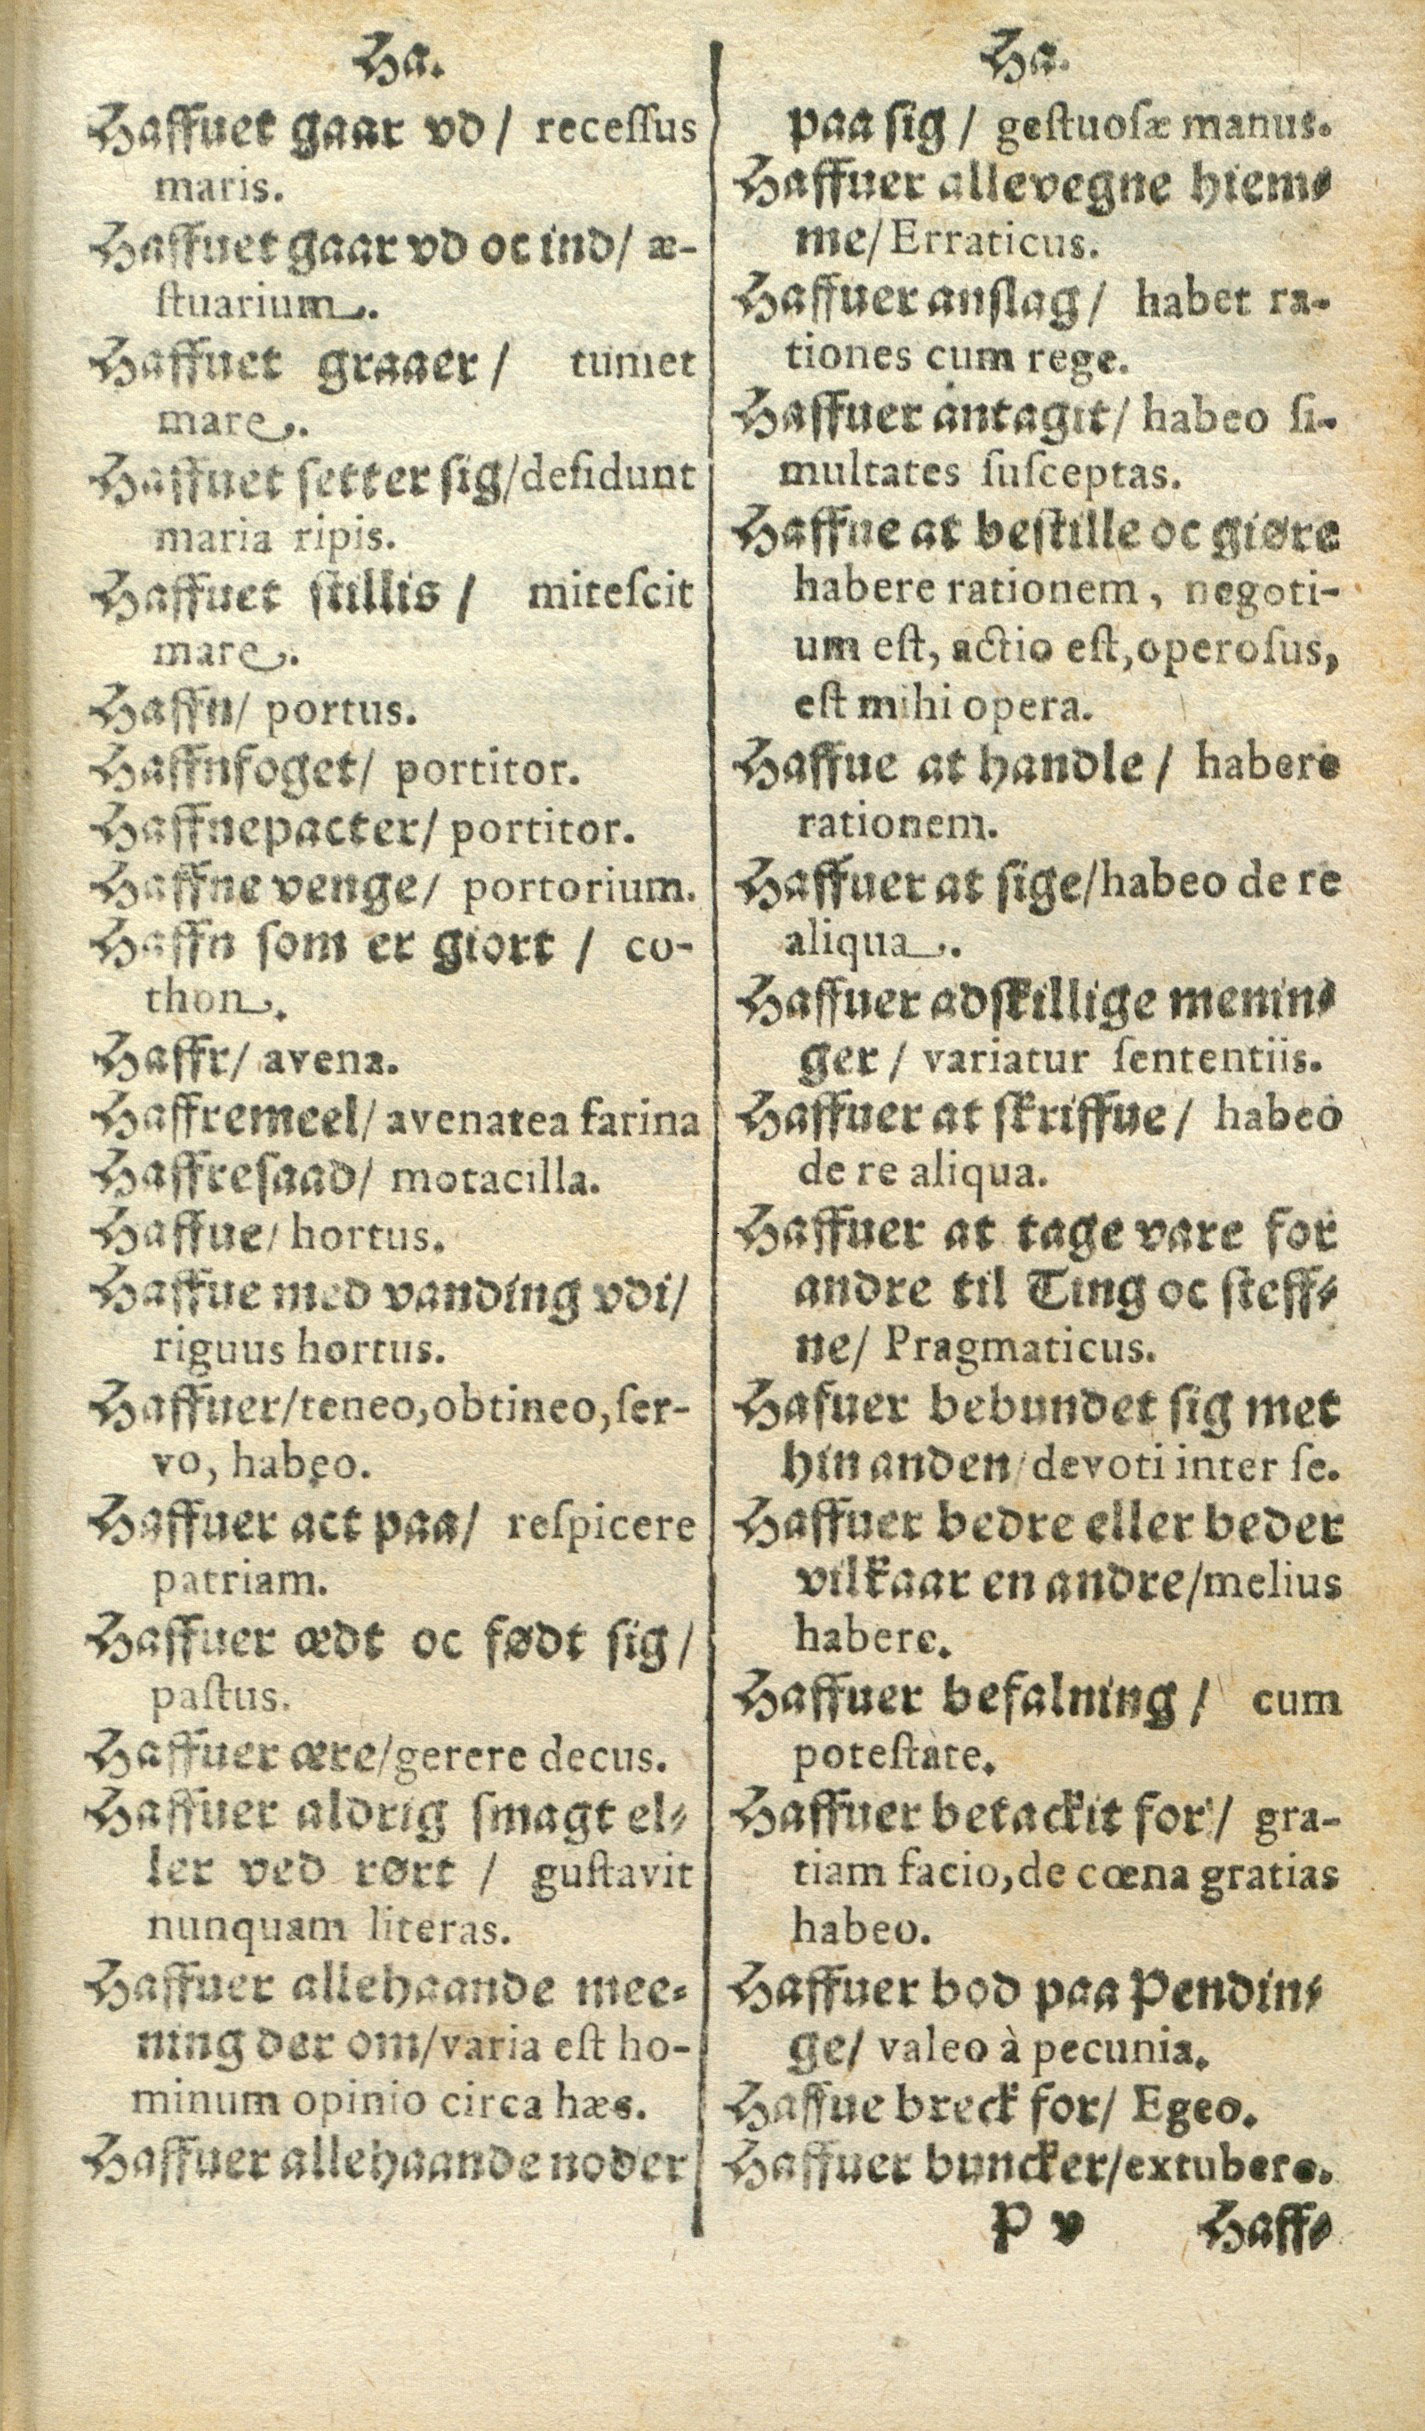 Ha.
Haffuet gaar vd / recessus
maris.
Haffuet gaar vd oc ind / æ-
stuarium.
Haffuet graaer / tumet
mare.
Haffuet setter sig / desidunt
maria ripis.
Haffuet stillis / mitescit
mare.
Haffn / portus.
Haffnfoget / portitor.
Haffnepacter / portitor.
Haffne venge / portorium.
Haffn som er giort / co-
thon.
Haffr / avena.
Haffremeel / avenatea farina
Haffresaad / motacilla.
Haffue / hortus.
Haffue med vanding vdi /
riguus hortus.
Haffuer / teneo, obtineo, ser-
vo, habeo.
Haffuer act paa / respicere
patriam.
Haffuer ædt oc født sig /
pastus.
Haffuer ære / gerere decus.
Haffuer aldrig smagt el-
ler ved rørt / gustavit
nunquam literas.
Haffuer allehaande mee-
ning der om / varia est ho-
minum opinio circa hæs.
Haffuer allehaande noder
Ha.
paa sig / gestuosæ manus.
Haffuer allevegne hiem-
me / Erraticus.
Haffuer anslag / habet ra-
tiones cum rege.
Haffuer antagit / habeo si-
multates susceptas.
Haffue at bestille oc giøre
habere rationem, negoti-
um est, actio est, operosus,
est mihi opera.
Haffue at handle / habere
rationem.
Haffuer at sige / habeo de re
aliqua.
Haffuer adskillige menin-
ger / variatur sententiis.
Haffuer at skriffue / habeo
de re aliqua.
Haffuer at tage vare for
andre til Ting oc steff-
ne / Pragmaticus.
Hafuer bebundet sig met
hin anden / devoti inter se.
Haffuer bedre eller beder
vilkaar en andre / melius
habere.
Haffuer befalning / cum
potestate.
Haffuer betackit for / gra-
tiam facio, de cœna gratias
habeo.
Haffuer bod paa Pendin-
ge / valeo à pecunia.
Haffue breck for / Egeo.
Haffuer buncker / extubere.
P v Haff-